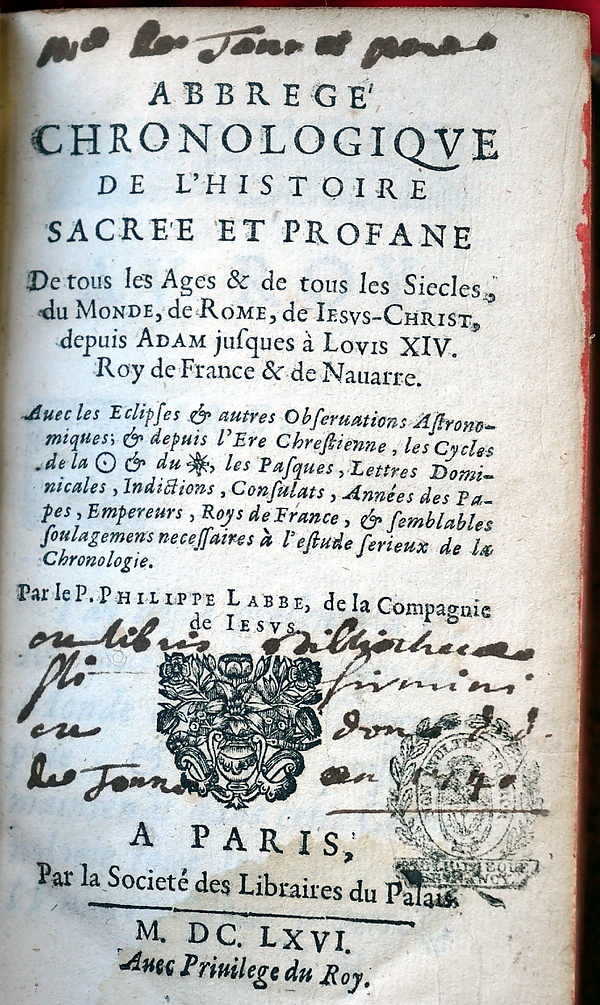 ABBREGE'
CHRONOLOGIQVE
DE L'HISTOIRE
SACREE ET PROFANE
De tous les Ages & de tous les Siecles,
du MONDE, de ROME, de IESVS-CHRIST,
depuis ADAM juſques à LOVIS XIV.
Roy de France & de Nauarre.
Auec les Eclipſes & autres Obſeruations Aſtrono-
miques; & depuis l'Ere Chreſtienne, les Cycles
de la ☉ & du ☀, les Paſques, Lettres Domi-
nicales, Indictions, Conſulats, Années des Pa-
pes, Empereurs, Roys de France, & ſemblables
ſoulagemens neceſſaires à l'eſtude ſerieux de la
Chronologie.
Par le P. PHILIPPE LABBE, de la Compagnie
de IESVS.
ex libris Bibliothecae
sti firmini
ex dono
de Tour an 1740
A PARIS,
Par la Societé des Libraires du Palais.
M. DC. LXVI.
Auec Priuilege du Roy.